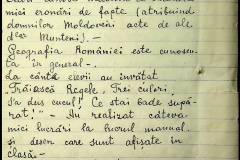 mici eronări de fapte (atribuind
domnilor Moldoveni acte de ale
celor Munteni). —
Geografia României este cunoscu-
tă în general. —
La cântă elevii au învățat
„Trăiască Regele, Trei culori,
S'a dus cucul! Ce stai bade supă-
rat!" — Au realizat câteva
mici lucrări la lucrul manual
și desen care sunt afișate în
clasă. —